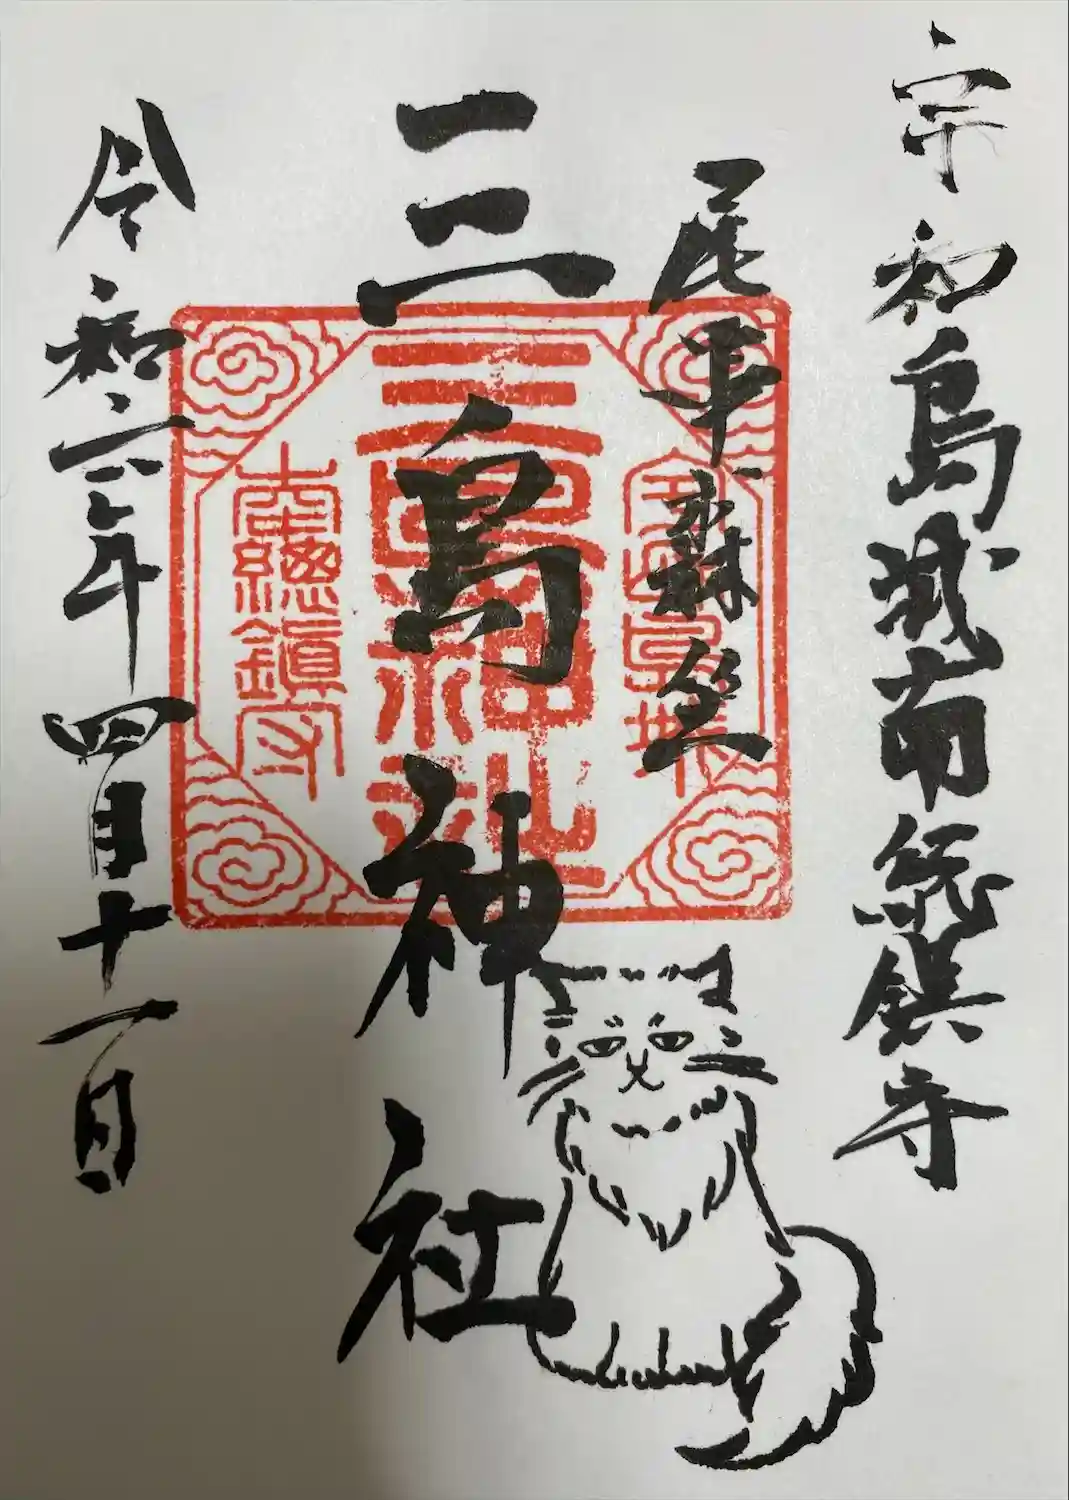 宇和島城南総鎮守
尾串森坐
三島神社
宇和島城
三島神社
南総鎮守
令和六年四月十一日